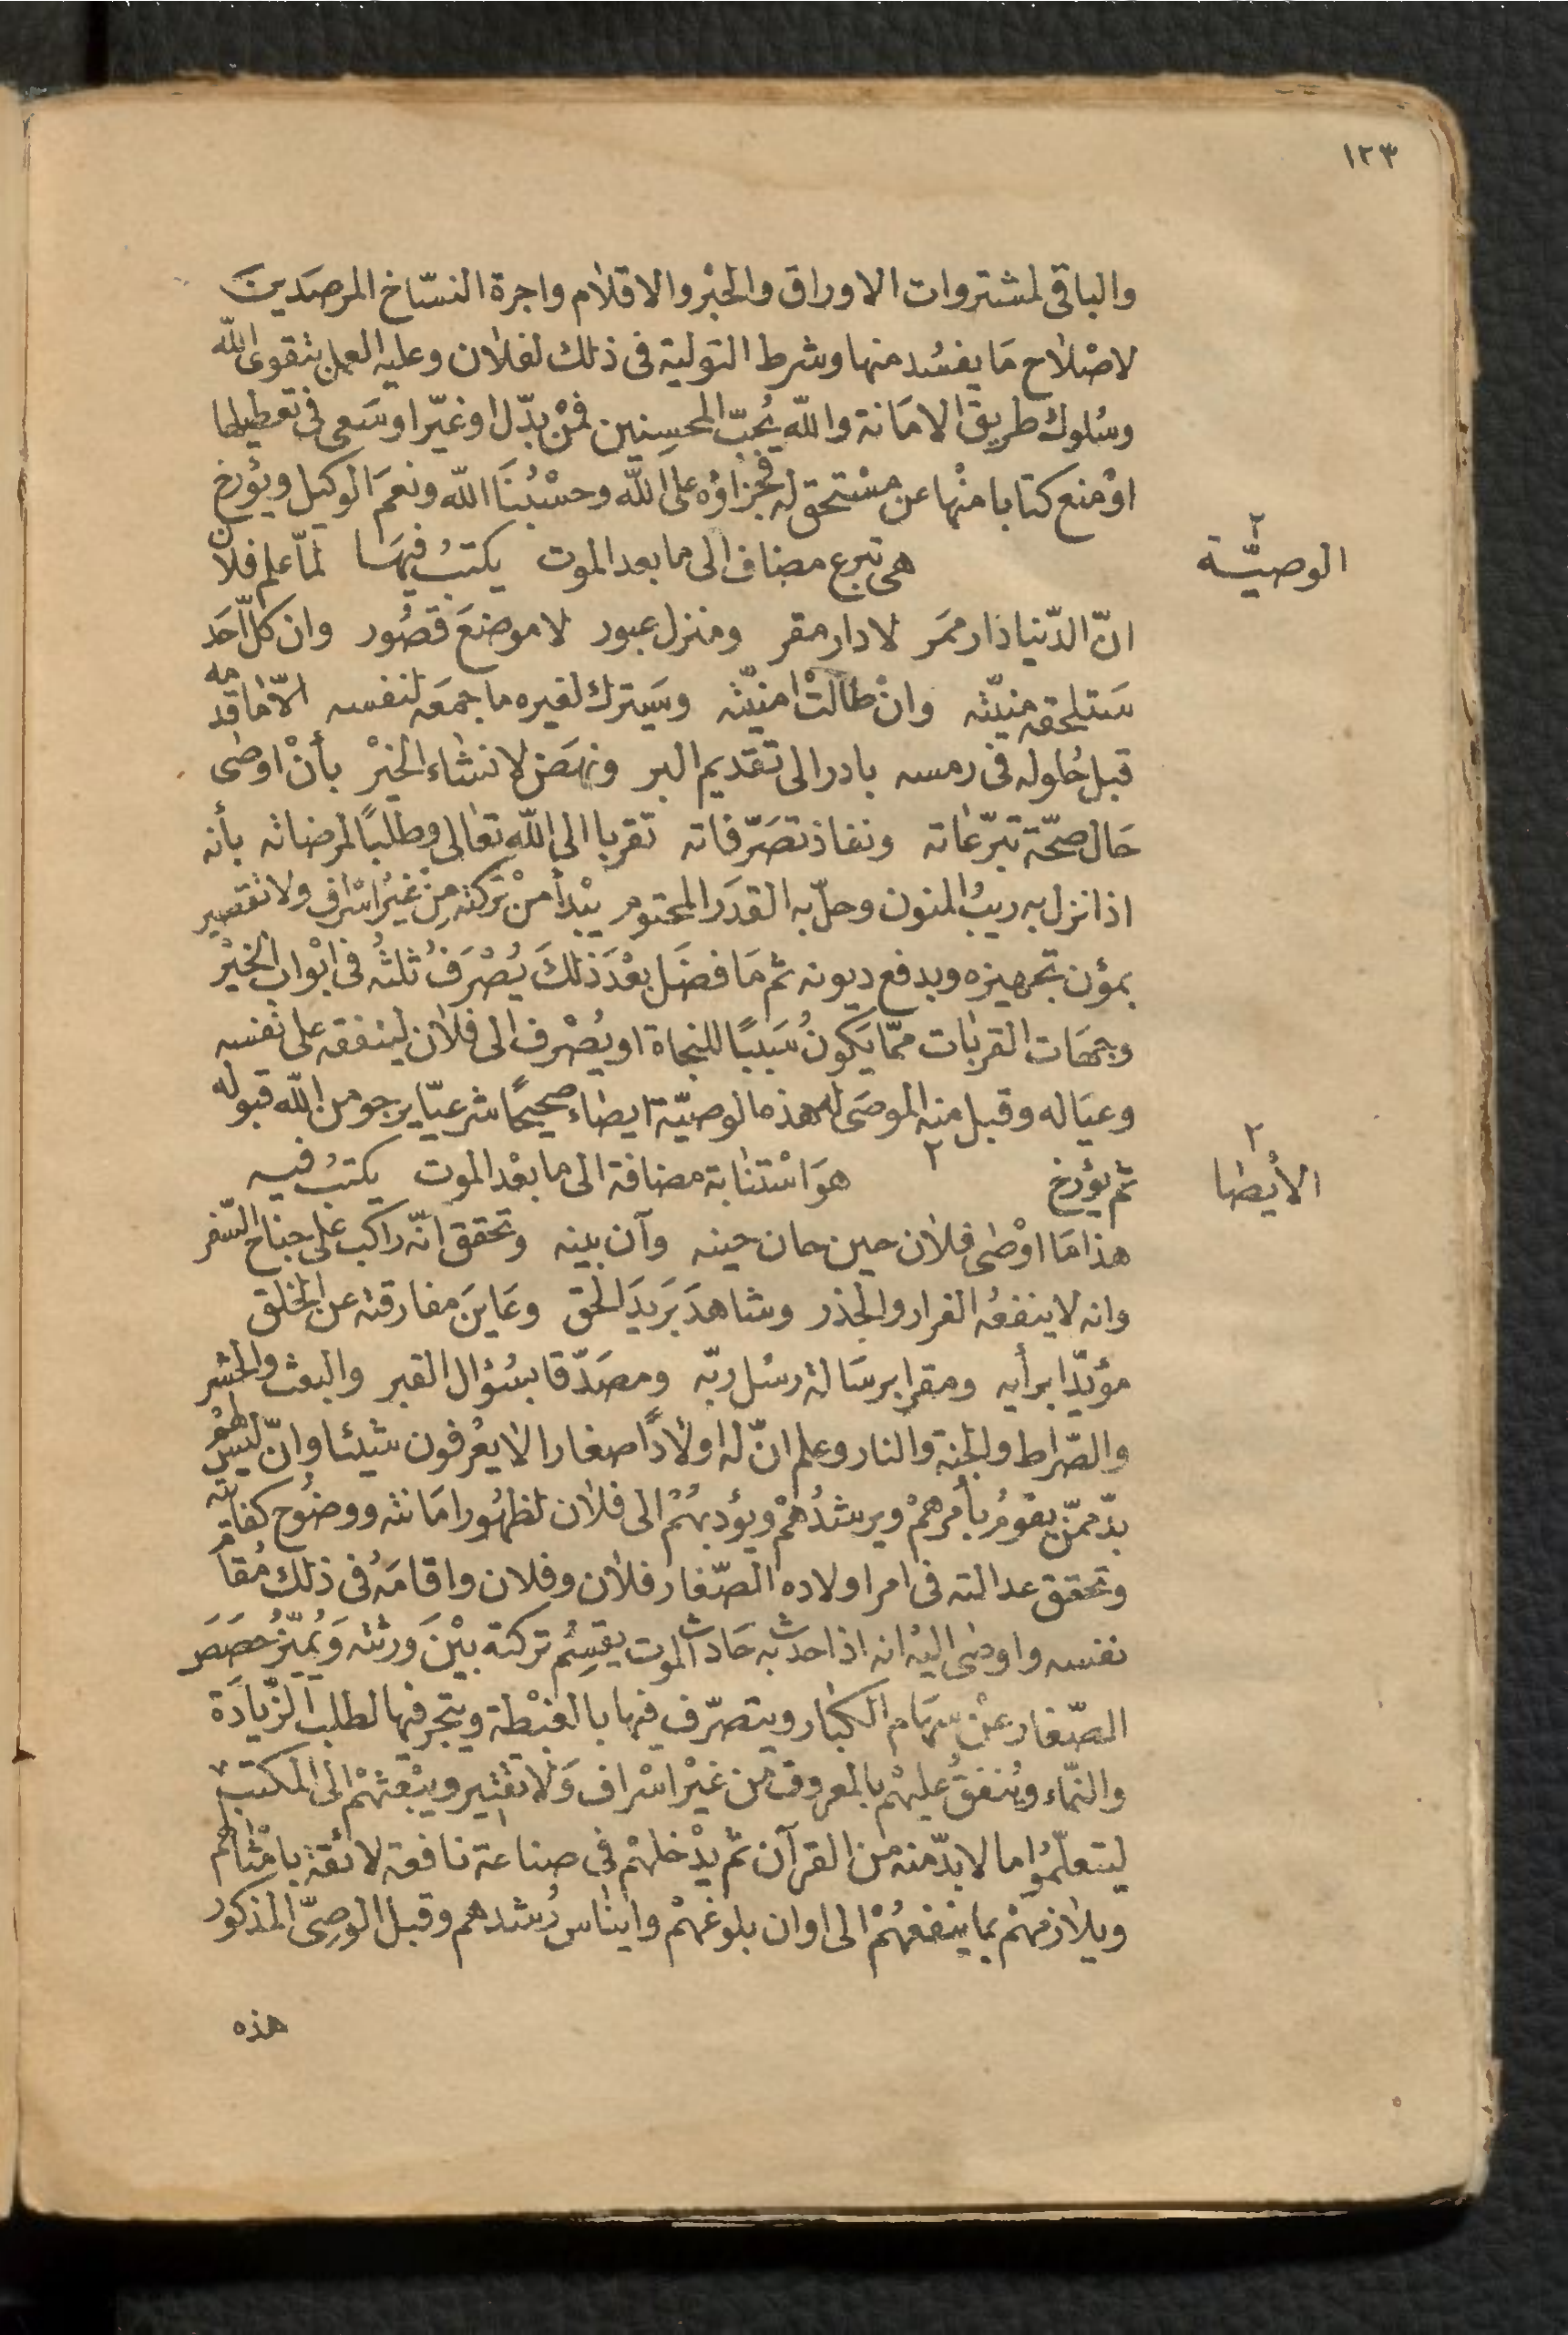 ١٢٣
والباقى لمشتروات الاوراق والحبْر والاقلام واجرة النسّاخ المرصَدينَ
لاصْلاح مَا يفسُد منها وشرط التولية فى ذلك لفلان وعليه العمل بتقوى الله
وسُلوك طريق الامَانة والله يُحبّ المحسِنين فمنْ بدّل او غيّر او سَعى فى تعطيلها
اوْ منع كتابا منْها عن مسْتحق له فجزاؤه على الله وحسْبُنَا الله ونعمَ الوكيل ويؤرخ
الوصيّة ٢ هى تبرع مضاف الى ما بعد الموت يكتبُ فيهَا لمّا علم فلان
انّ الدّنيا دَار ممَر لا دار مقر ومنزل عبور لا موضعَ قصُور وان كلّ احَد
سَتلحقه منيّته وانْ طالتْ امنيّته وسَيترك لغيره ما جمعَه لنفسه الاّ مَا قدمه
قبل حُلوله فى رمسه بادر الى تقديم البر ونهَض لانشاء الخيْر بأنْ اوصٰى
حَال صحّة تبرّعاته ونفاذ تصَرّفاته تقربا الى الله تعالى وطلبًا لمرضاته بأنه
اذا نزل به ريبُ المنون وحلّ به القدَر المحتوم يبْدأ منْ تركته منْ غيْر اسْراف ولا تقصير
بمؤن تجهيزه وبدفع ديونه ثم مَا فضَل بعْدَ ذلكَ يُصْرَفُ ثلثُه فى ابْواب الخيْر
وجهَات القربات ممّا يَكونُ سَببًا للنجاة او يُصْرف الى فلان لينفقه على نفسه
وعيَاله وقبل منه الموصَى له هذه الوصيّة ايصاء صحيحًا شرعيّا يرجو من الله قبوله
ثم يؤرخ ٢ الأيصا ٢ هوَ اسْتنابة مضافة الى ما بعْد الموت يكتبُ فيه
هذا مَا اوْصٰى فلان حين حان حينه وآن بينه وتحقق انّه راكب على جناح السّفر
وانه لا ينفعُه الفرار والحذر وشاهدَ بَريدَ الحق وعَاينَ مفارقته عن الخلق
مؤيّدا برأيه ومقرا برسَالة رسُل ربّه ومصَدّقا بسُؤال القبر والبعث والحشر
والصّراط والجنة والنار وعلم انّ له اولادًا صغارا لا يعْرفون شيئا وانّ ليسَ لهُم
بدّ ممّن يقومُ بأمرهمْ ويرشدُهمْ ويؤدبهُمْ الى فلان لظهُور امَانته ووضُوح كفايته
وتحقق عدالته فى امر اولاده الصّغار فلان وفلان واقامَهُ فى ذلك مُقام
نفسه واوصٰى اليْه انه اذا حدث به حَادث الموت يقسِمُ تركته بيْنَ ورثته وَيُميّز حصَصَ
الصّغار عنْ سهَام الكبار ويتصرّف فيها بالغبْطة ويتجر فيها لطلب الزّيادَة
والنّماء ويُنفقُ عليهْم بالمعروف من غيْر اسْراف وَلا تقتير ويبْعثهمْ الى المكتب
ليتعلّمُوا ما لا بدّ منه من القرآن ثم يدْخلهمْ فى صناعة نافعة لائقة بامْثالهم
ويلازمهمْ بما ينفعهُمْ الى اوان بلوغهمْ وايناس رُشدهم وقبل الوصىّ المذكور
هذه